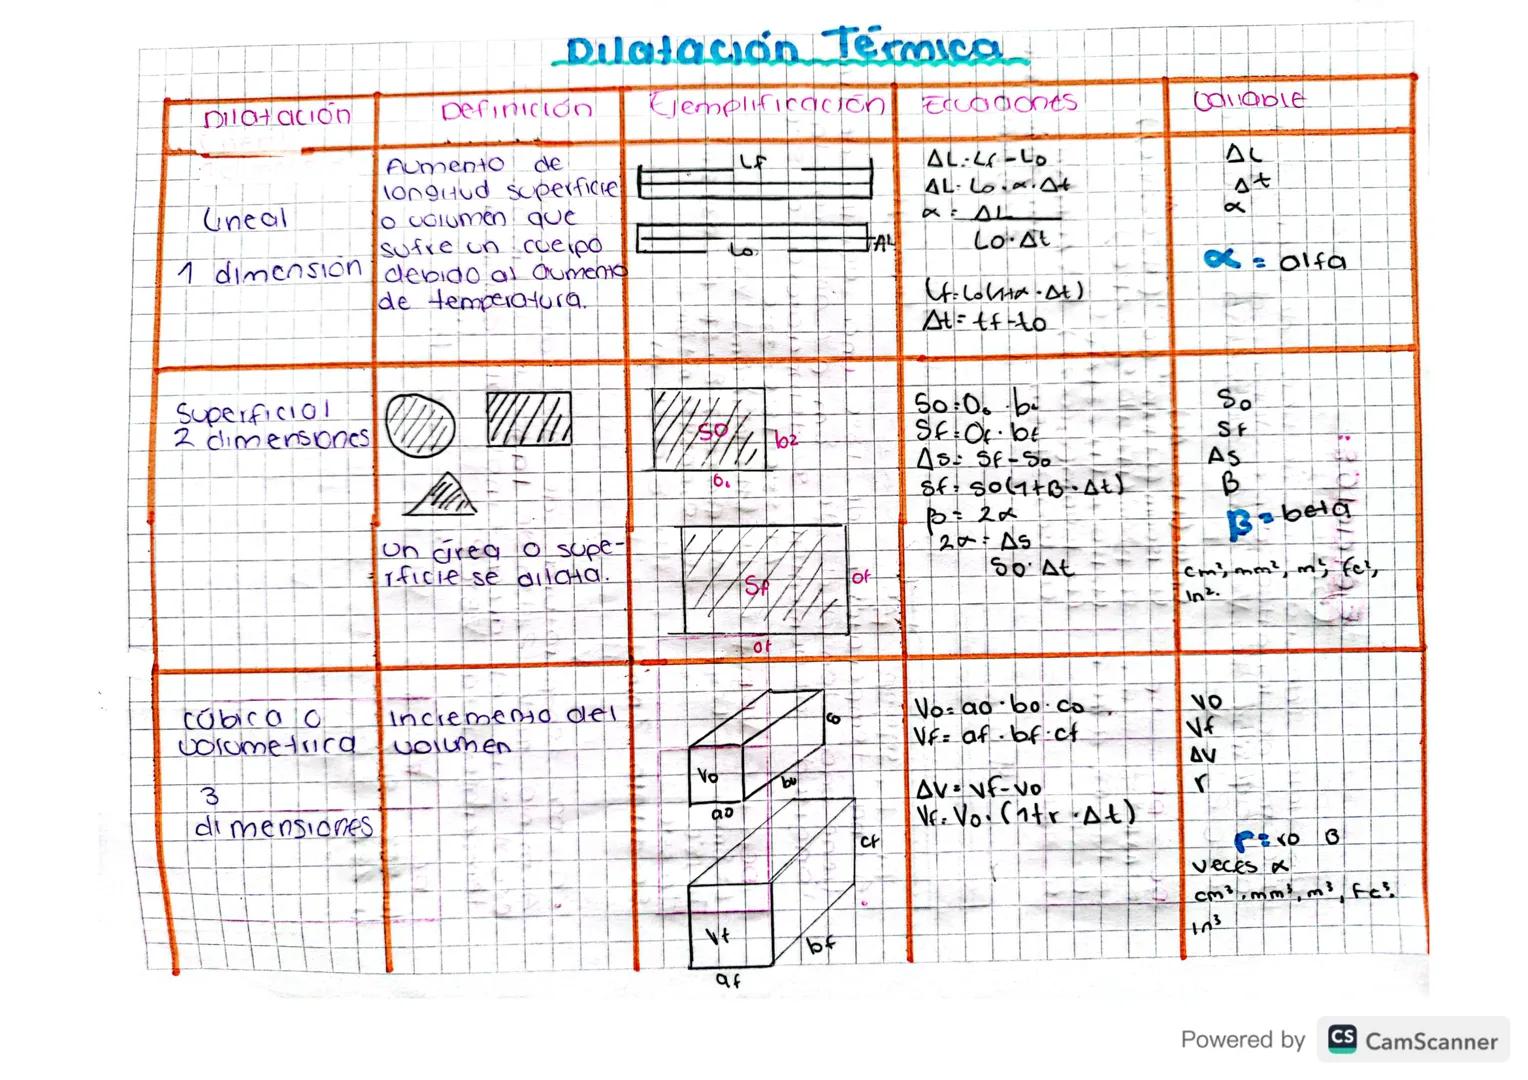 Dilatación Térmica
Dilatación
Definición
Ejemplificación
Ecuaciones
Variable
Lineal
1 dimensión
Aumento de
longitud superficie
o volumen que
sufre un cuerpo
debido al aumento
de temperatura.
Lf
Lo
ΔL
ΔL=Lf-Lo
ΔL=Lo·α·Δt
α = ΔL
Lo·Δt
Lf=Lo(1+α·Δt)
Δt=tf-to
ΔL
Δt
α
α = alfa
Superficial
2 dimensiones
Un área o supe-
rficie se dilata.
So
b2
Sf
of
of
So=
Sf=
ΔS= Sf-So
Sf= So(1+B·Δt)
β= 2α
2α= ΔS
So·Δt
So
Sf
ΔS
β
β= beta
cm², mm², m², ft²,
in².
Cúbica o
volumetrica
3
dimensiones
Incremento del
volumen
Vo
ao
bo
co
Vf
af
bf
cf
Vo= ao·bo·co
Vf= af·bf·cf
ΔV= Vf-Vo
Vf=Vo·(1+r·Δt)
Vo
Vf
ΔV
r
r=ro
veces α
cm³, mm³, m³, ft³,
in³
Powered by CS CamScanner